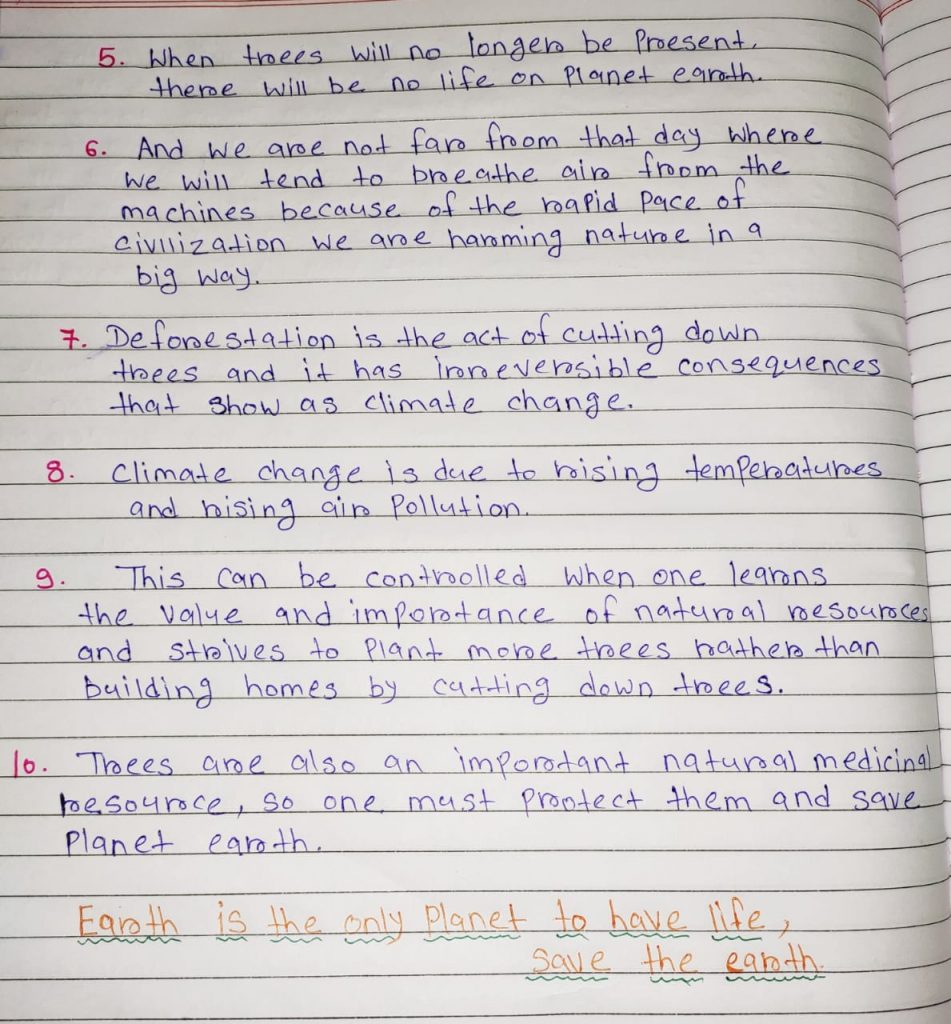 5. When trees will no longer be Present,
there will be no life on Planet earth.
6. And we are not far from that day where
we will tend to breathe air from the
machines because of the rapid pace of
civilization we are harming nature in a
big way.
7. Deforestation is the act of cutting down
trees and it has irreversible consequences
that show as climate change.
8. Climate change is due to rising temperatures
and rising air Pollution.
9. This can be controlled when one learns
the value and importance of natural resources
and strives to Plant more trees rather than
building homes by cutting down trees.
10. Trees are also an important natural medicinal
resource, so one must protect them and save
Planet earth.
Earth is the only Planet to have life,
save the earth.